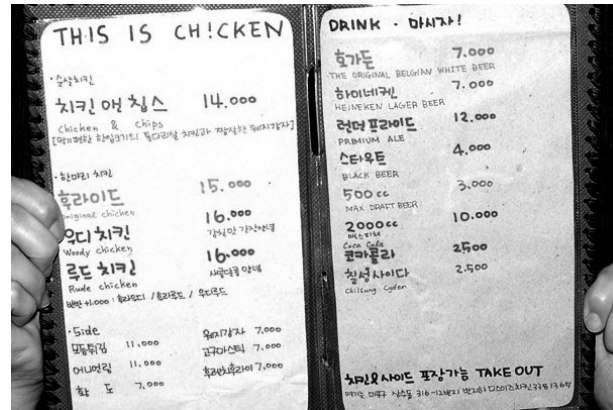 THIS IS CH!CKEN
·순살치킨
치킨 앤 칩스 14.000
Chicken & Chips
[먹기편한 한입크기의 통다리살 치킨과 짭짤한 웨지감자]
·한마리 치킨
후라이드 15.000
Original chicken
우디 치킨 16.000
Woody chicken 간장양념
루드 치킨 16.000
Rude chicken 새콤달콤 양념
반반 +1.000 : 후라우디 / 후라루드 / 우디루드
·Side
모듬튀김 11.000
어니언링 11.000
황도 7.000
웨지감자 7.000
고구마스틱 7.000
후렌치후라이 7.000
DRINK · 마시자!
호가든 7.000
THE ORIGINAL BELGIAN WHITE BEER
하이네켄 7.000
HEINEKEN LAGER BEER
런던 프라이드 12.000
PRIMIUM ALE
스타우트 4.000
BLACK BEER
500cc 3.000
MAX DRAFT BEER
2000cc 10.000
맥스
Coca Cola
코카콜라 2500
칠성사이다 2.500
Chilsung Cyder
치킨&사이드 포장가능 TAKE OUT
여기는 마포구 상수동 316-12번지 반지하 디스이즈치킨